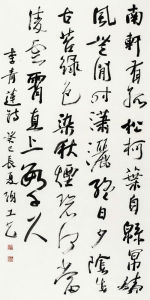 南軒有孤松柯葉自緜冪清
風無閒時瀟灑終日夕陰生
古苔綠色染秋煙碧何當
凌雲霄直上數千尺
李青蓮詩 癸巳長夏